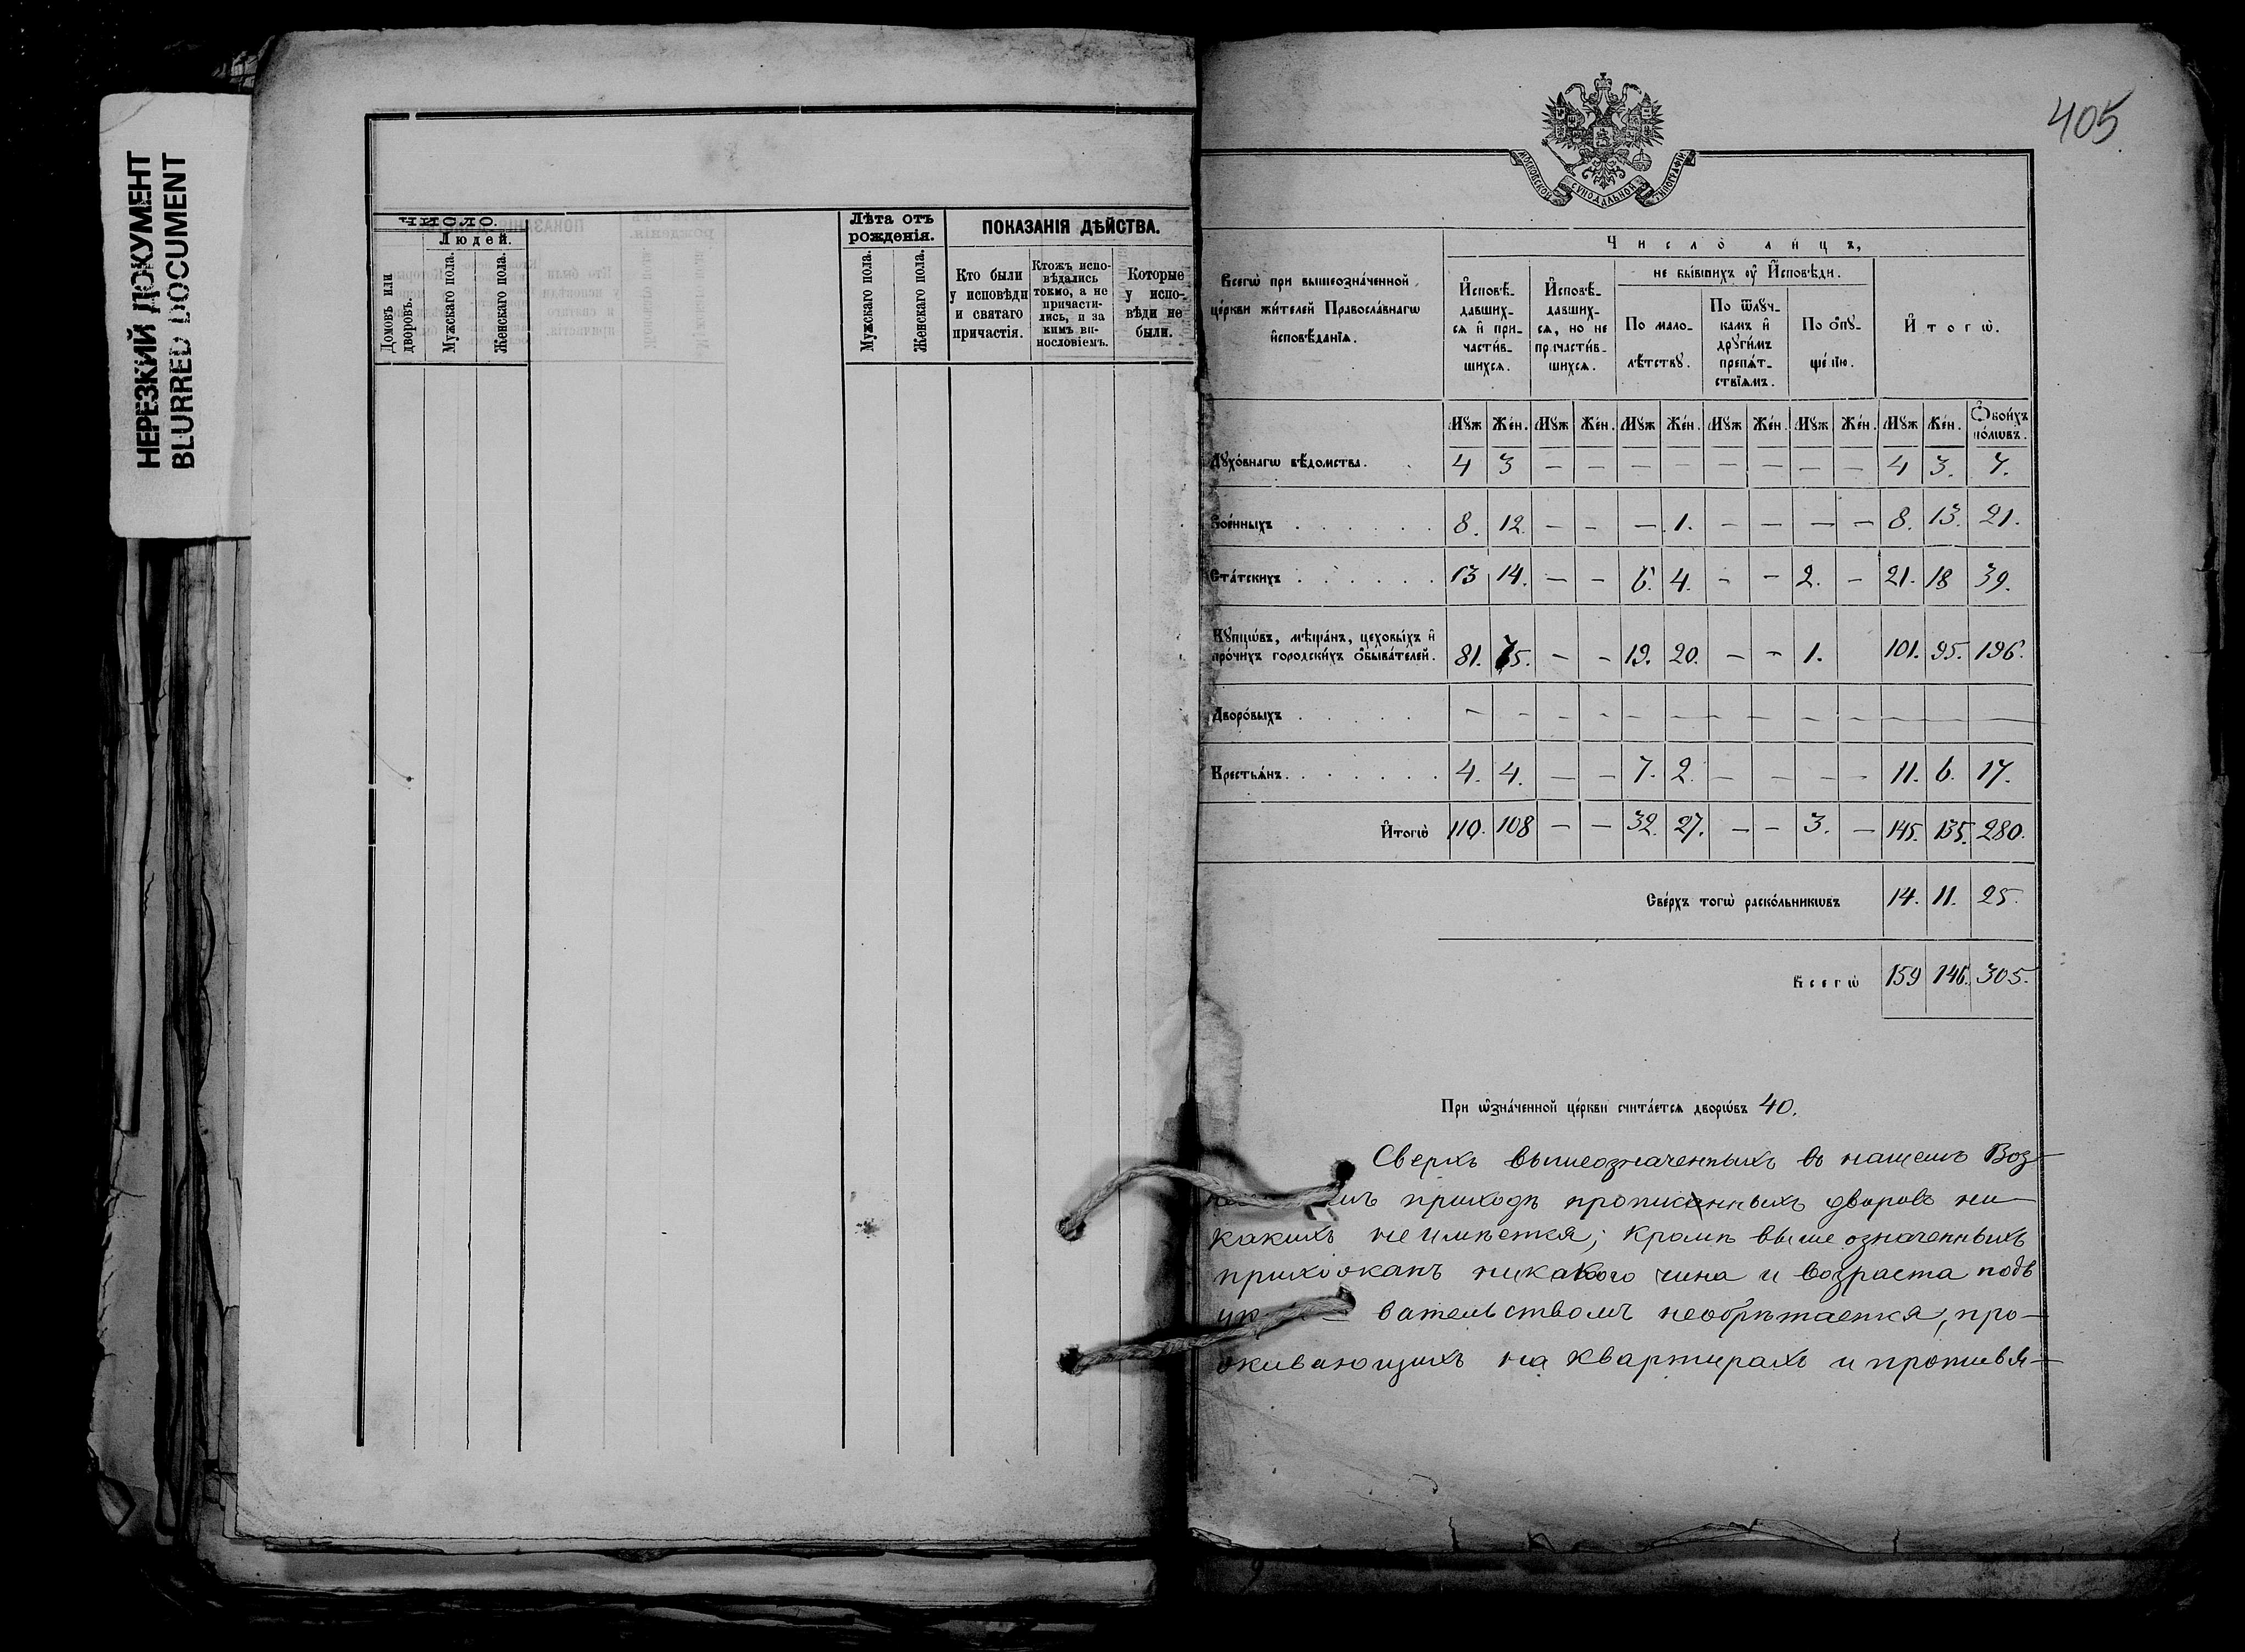 НЕРЕЗКИЙ ДОКУМЕНТ
BLURRED DOCUMENT
ЧИСЛО.
Людей.
Домовъ или дворовъ.
Мужскаго пола.
Женскаго пола.
Лѣта отъ рожденія.
Мужскаго пола.
Женскаго пола.
ПОКАЗАНІЯ ДѢЙСТВА.
Кто были у исповѣди и святаго причастія.
Ктожъ исповѣдались токмо, а не причастились, и за какимъ винословіемъ.
Которые у исповѣди не были.
405
МОСКОВСКОЙ СУНОДАЛЬНОЙ ТИПОГРАФІИ
Всегѡ̀ при вышеозна́ченной
це́ркви жи́телей Правосла́внагѡ
и҆сповѣ́данїѧ.
Число̀ ли́цъ,
И҆сповѣ́давшихсѧ и҆ причасти́вшихсѧ.
И҆сповѣ́давшихсѧ, но не причасти́вшихсѧ.
не бы́вшихъ ѹ҆ И҆сповѣди.
По малолѣ́тствꙋ.
По ѿлꙋ́чкамъ и҆ дрꙋги́мъ препѧ́тствїѧмъ.
По ѡ҆пꙋще́нїю.
И҆тогѡ̀.
Мꙋж Же́н. Мꙋж Же́н. Мꙋж Же́н. Мꙋж Же́н. Мꙋж Же́н. Мꙋж Же́н. Ѻ҆бои́хъ по́лѡвъ.
Дꙋхо́внагѡ вѣ́домства. 4 3 — — — — — — — — 4 3. 7.
Вое́нныхъ 8. 12. — — — 1. — — — — 8. 13. 21.
Ста́тскихъ 13 14. — — 6. 4. — — 2. — 21. 18 39.
Кꙋпцѡ́въ, мѣща́нъ, цеховы́хъ и҆
про́чихъ городски́хъ ѻ҆быва́телей. 81. 75. — — 19. 20. — — 1. 101. 95. 196.
Дворо́выхъ — — — — — — — — — — — — —
Крестьѧ́нъ 4. 4. — — 7. 2. — — — — 11. 6. 17.
И҆тогѡ̀ 110. 108 — — 32. 27. — — 3. — 145. 135. 280.
Све́рхъ тогѡ̀ раско́льникѡвъ 14. 11. 25.
Всегѡ̀ 159 146. 305.
При ѡ҆зна́ченной це́ркви счита́етсѧ дворѡ́въ 40.
Сверхъ вышеозначенныхъ въ нашемъ Воз-
приходѣ прописанныхъ дворовъ ни-
какихъ не имѣется; кромѣ выше означенныхъ
прихожанъ никакого чина и возраста подъ
вательствомъ необрѣтается, про-
живающихъ на квартирахъ и